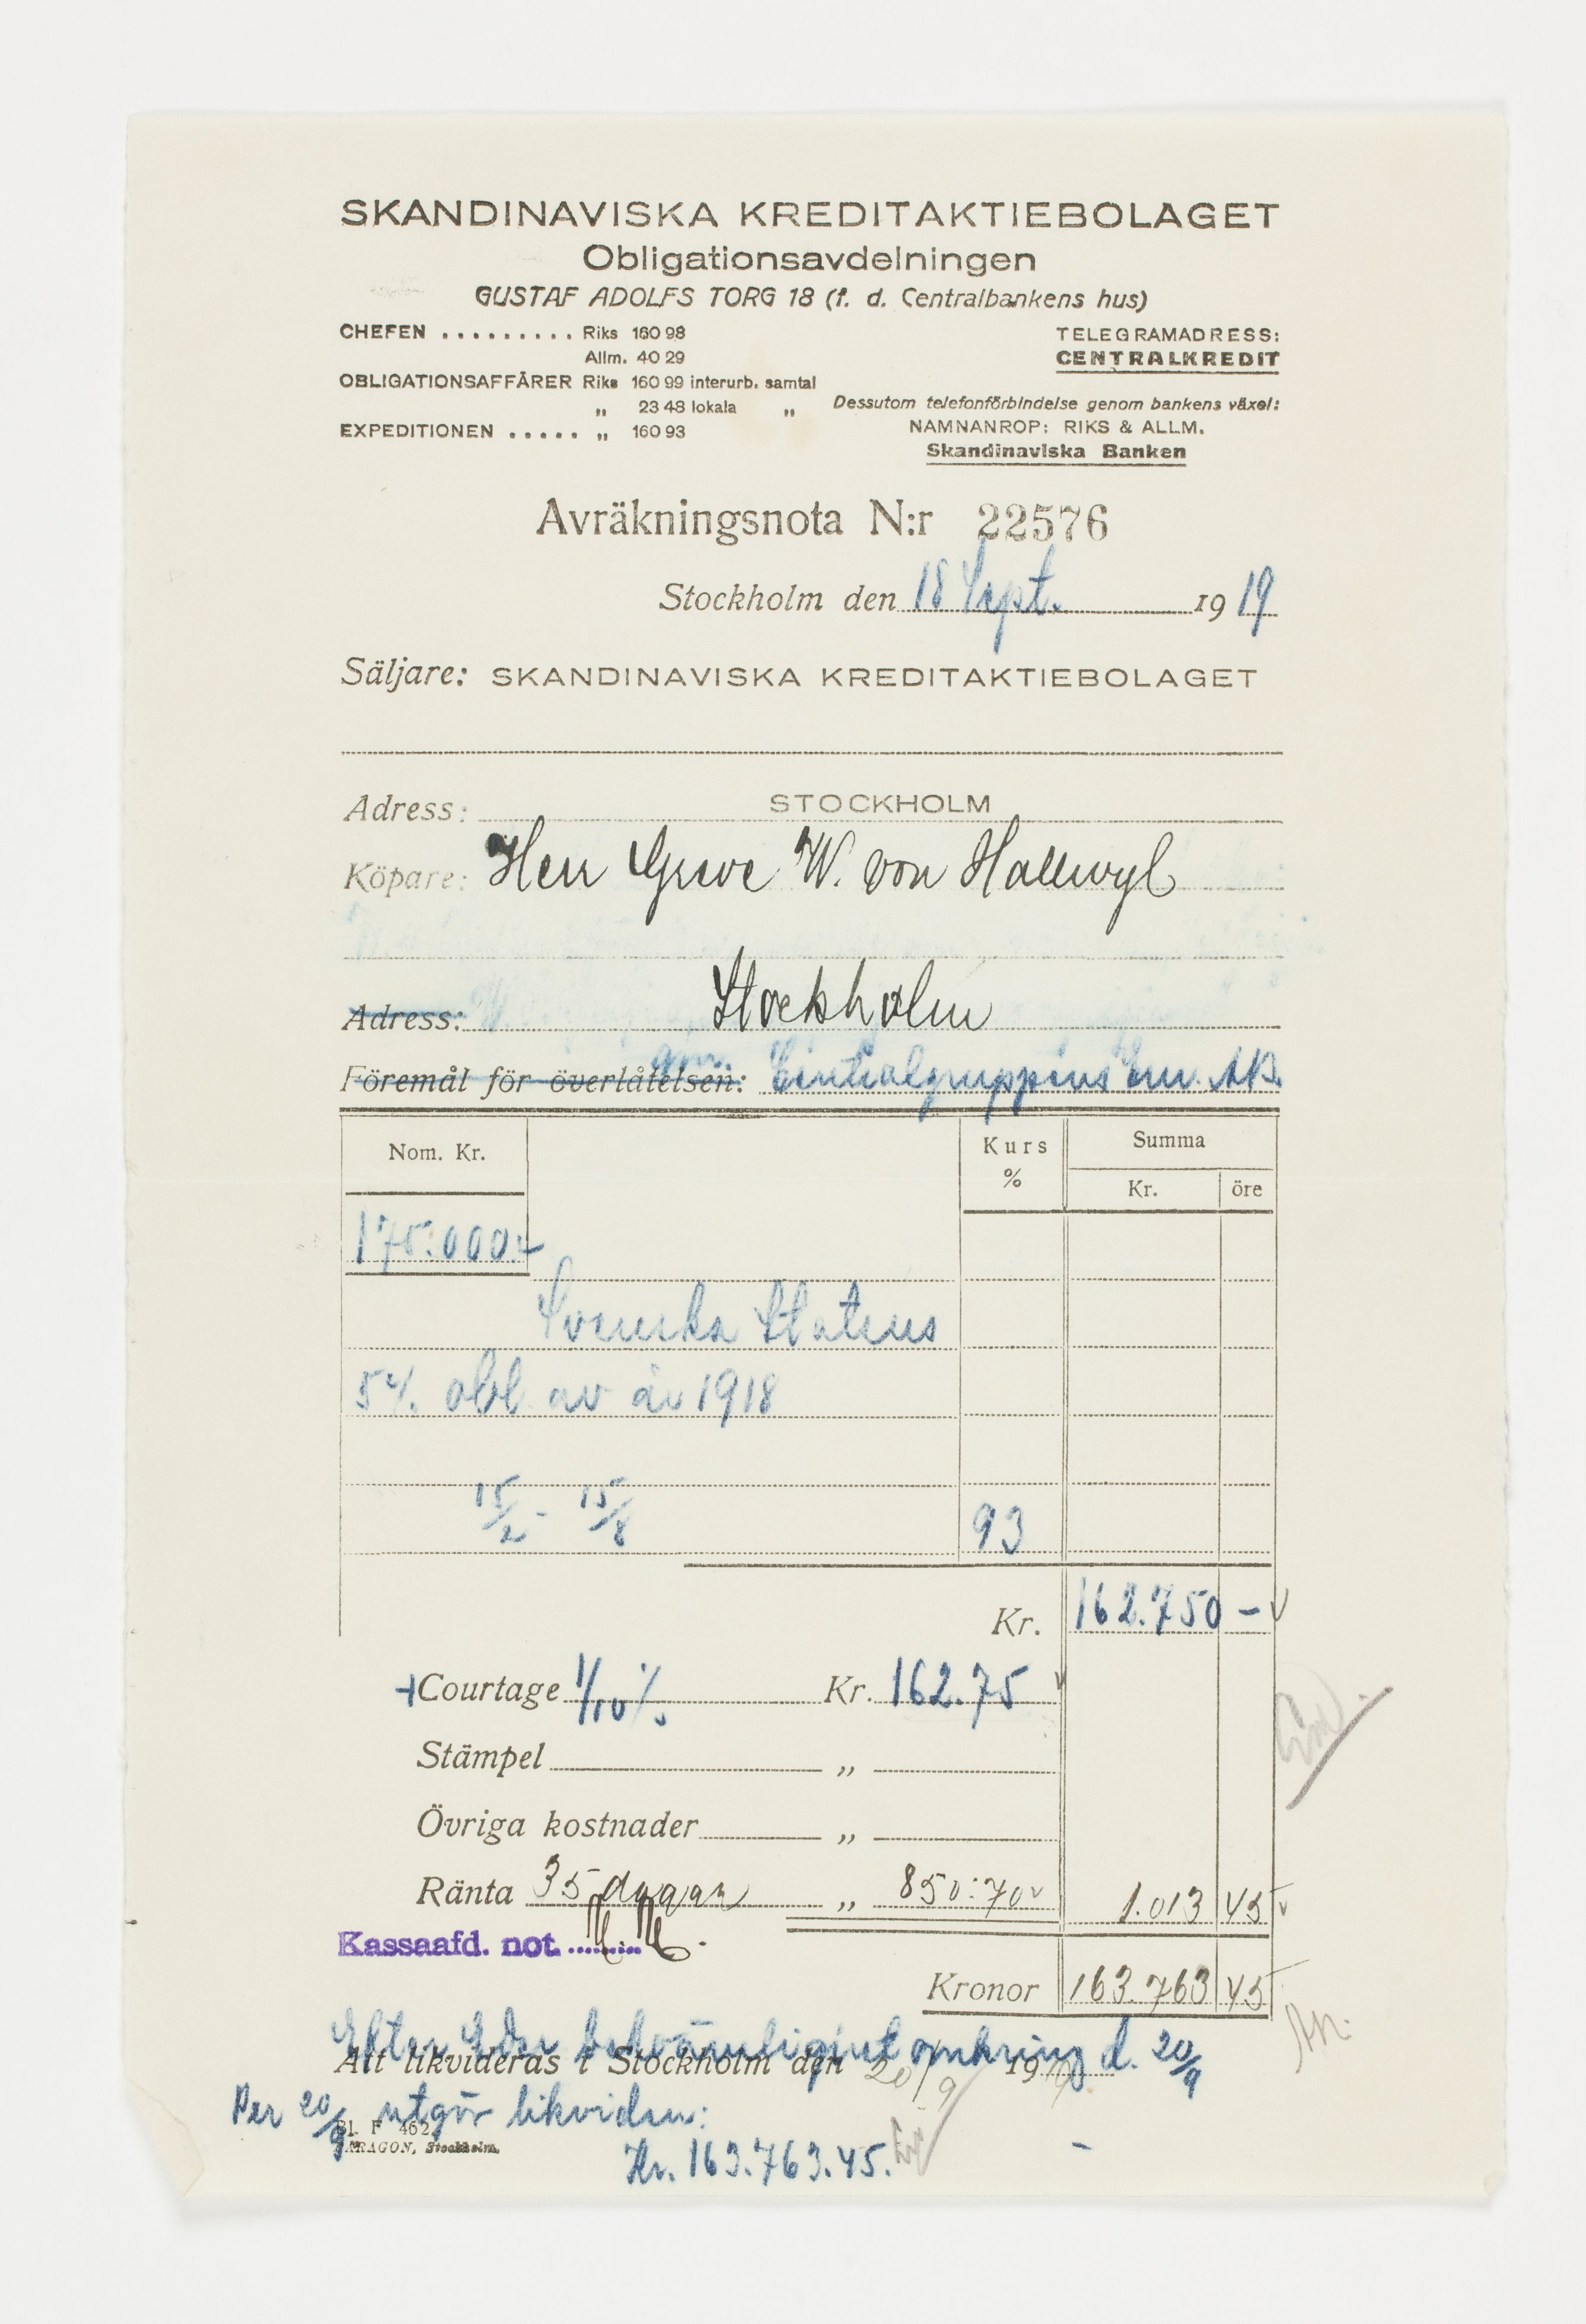 SKANDINAVISKA KREDITAKTIEBOLAGET
Obligationsavdelningen
GUSTAF ADOLFS TORG 18 (f. d. Centralbankens hus)
CHEFEN ......... Riks 160 98
Allm. 40 29
OBLIGATIONSAFFÄRER Riks 160 99 interurb. samtal
„ 23 48 lokala „
EXPEDITIONEN ..... „ 160 93
TELEGRAMADRESS:
CENTRALKREDIT
Dessutom telefonförbindelse genom bankens växel:
NAMNANROP: RIKS & ALLM.
Skandinaviska Banken
Avräkningsnota N:r 22576
Stockholm den 18 Sept. 1919
Säljare: SKANDINAVISKA KREDITAKTIEBOLAGET
Adress: STOCKHOLM
Köpare: Herr Greve W. von Hallwyl
Adress: Stockholm
Föremål för överlåtelsen: gm. Centralgruppens Em. AB.
Nom. Kr. Kurs % Summa
Kr. öre
175.000:-
Svenska Statens
5% obl av år 1918
15/2 - 15/8 93
Kr. 162.750 -
+ Courtage 1/10 % Kr. 162.75
Stämpel „
Övriga kostnader „
Ränta 35 dagar „ 850:70 1.013 45
Kassaafd. not.
Kronor 163.763 45
Efter Eder bekvämlighet omkring d. 20/9
Att likvideras i Stockholm den 20/9 1919
Per 20/9 utgör likviden:
Bl. F 462
PARAGON, Stockholm.
Kr. 163.763.45.